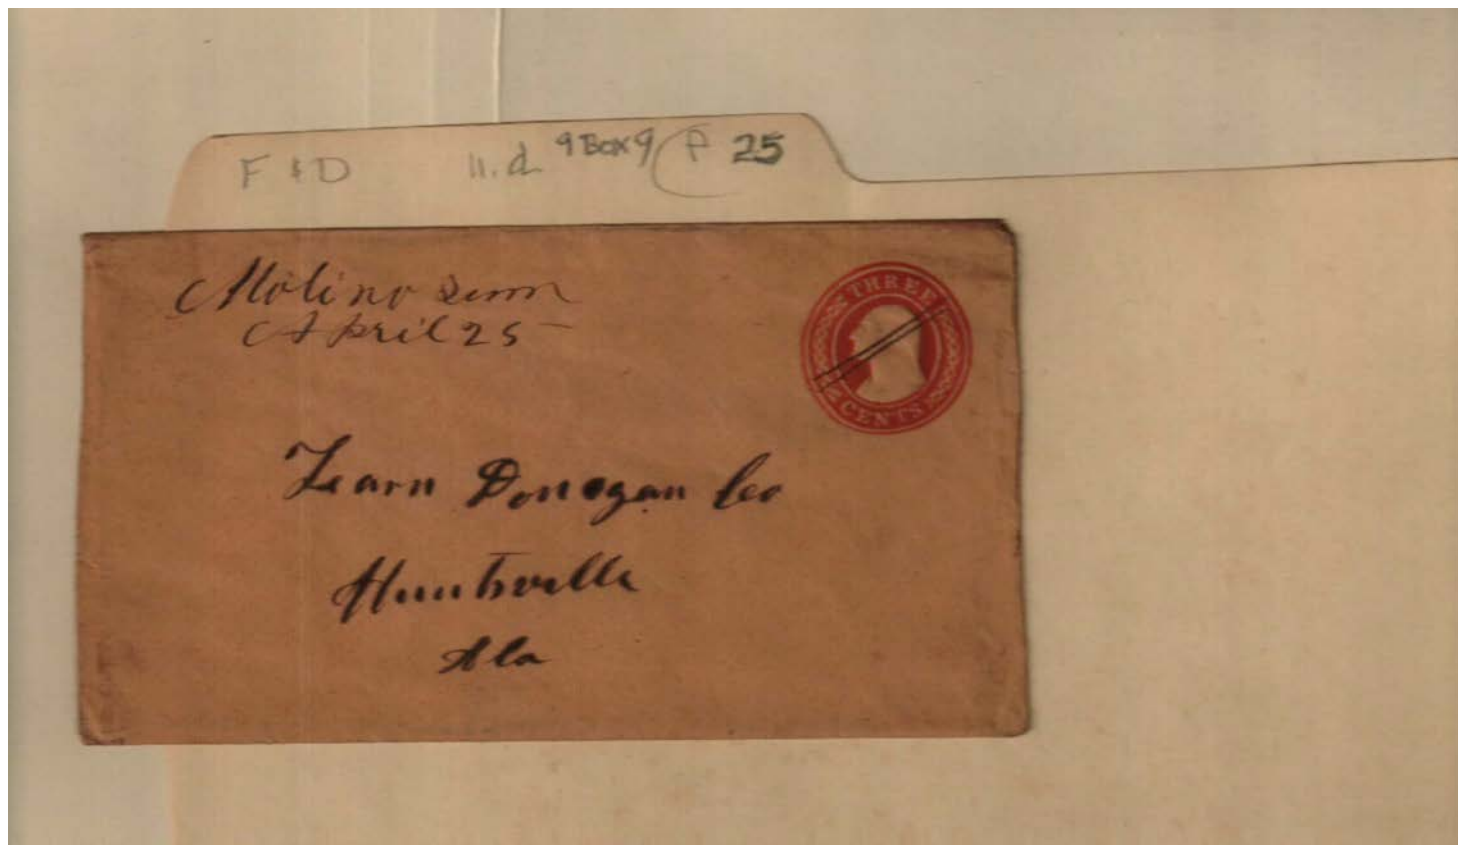 F & D n.d. 9 Box 9 P 25
Molino Tenn
April 25
THREE
CENTS
Fearn Donegan Co
Huntsville
Ala